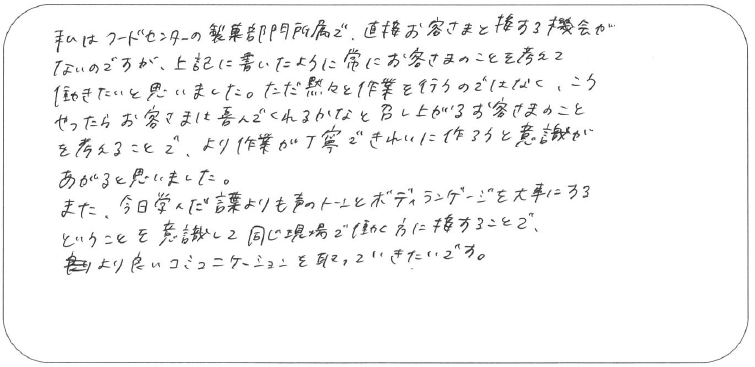 私はフードセンターの製菓部門所属で、直接お客さまと接する機会が
ないのですが、上記に書いたように常にお客さまのことを考えて
働きたいと思いました。ただ黙々と作業を行うのではなく、こう
やったらお客さまは喜んでくれるかなと召し上がるお客さまのこと
を考えることで、より作業が丁寧できれいに作ろうと意識が
あがると思いました。
また、今日学んだ言葉よりも声のトーンとボディランゲージを大事にする
ということを意識して同じ現場で働く方に接することで、
より良いコミュニケーションを取っていきたいです。